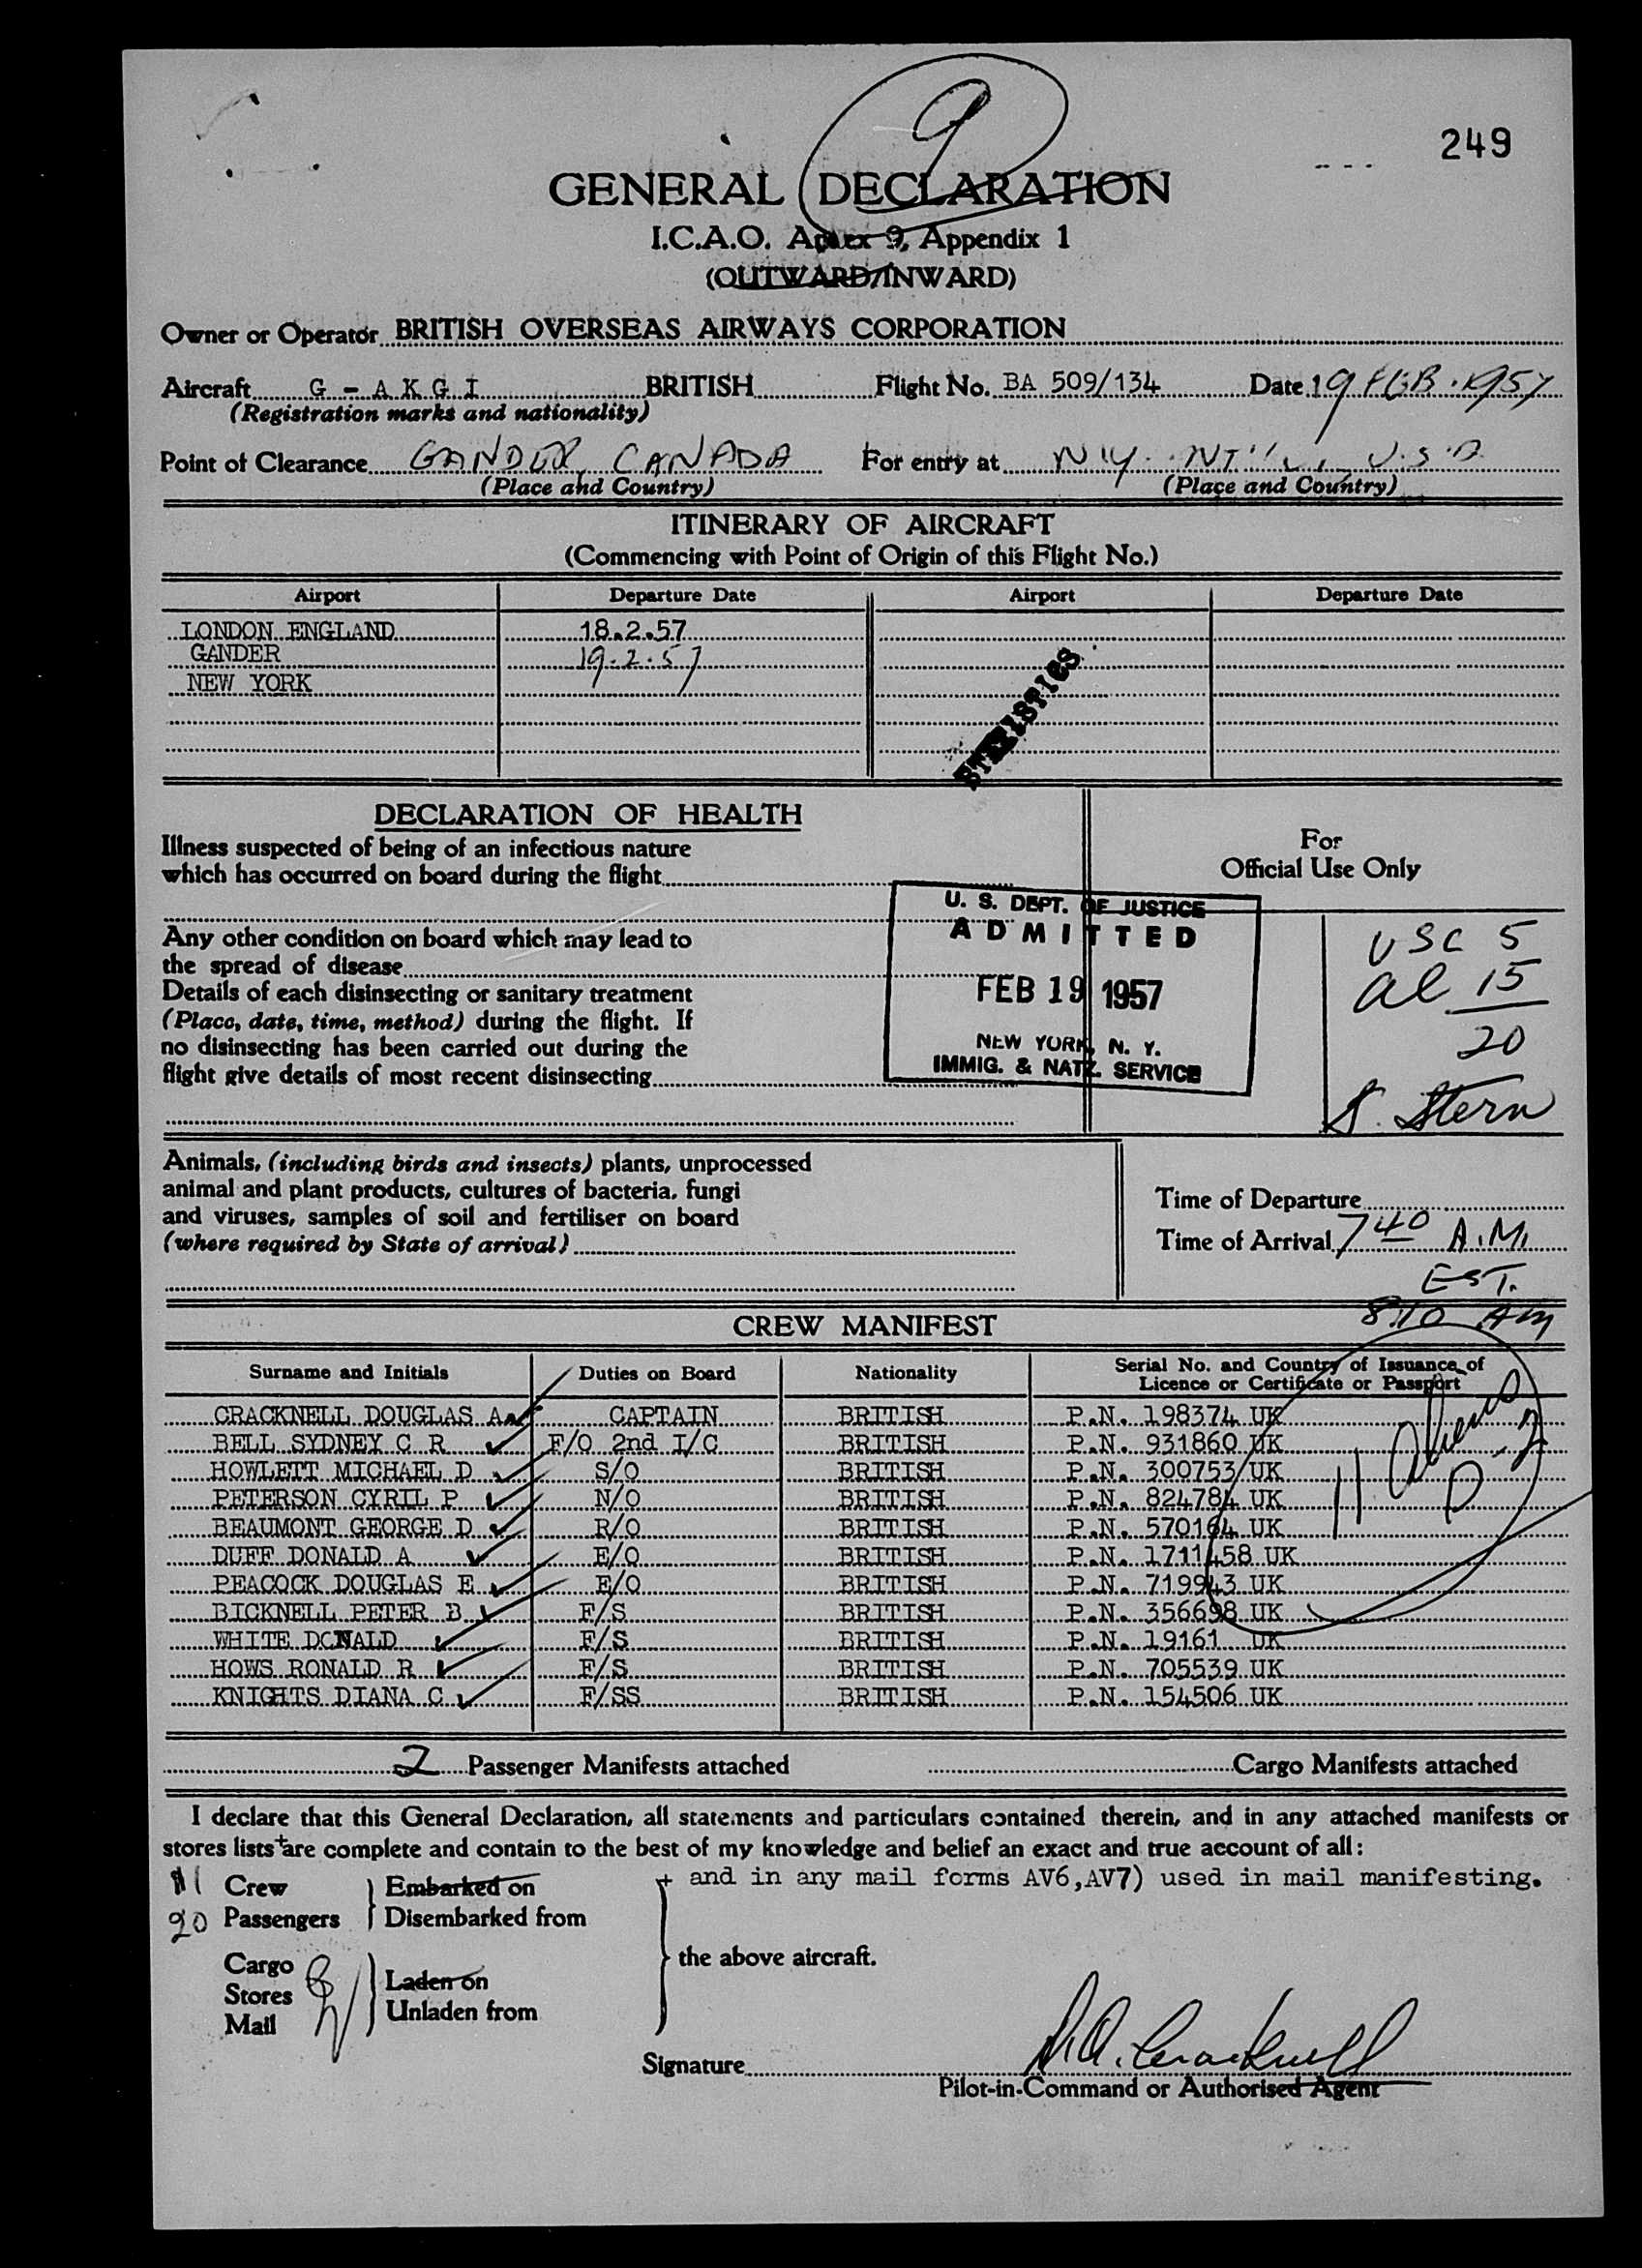 9
249
GENERAL DECLARATION
I.C.A.O. Annex 9, Appendix 1
(OUTWARD/INWARD)
Owner or Operator BRITISH OVERSEAS AIRWAYS CORPORATION
Aircraft G - A K G I BRITISH Flight No. BA 509/134 Date 19 FEB. 1957
(Registration marks and nationality)
Point of Clearance GANDER, CANADA For entry at N.Y. U.S.A.
(Place and Country) (Place and Country)
ITINERARY OF AIRCRAFT
(Commencing with Point of Origin of this Flight No.)
Airport Departure Date Airport Departure Date
LONDON ENGLAND 18.2.57
GANDER 19.2.57
NEW YORK
STATISTICS
DECLARATION OF HEALTH
Illness suspected of being of an infectious nature
which has occurred on board during the flight
For
Official Use Only
Any other condition on board which may lead to
the spread of disease
Details of each disinsecting or sanitary treatment
(Place, date, time, method) during the flight. If
no disinsecting has been carried out during the
flight give details of most recent disinsecting
U. S. DEPT. OF JUSTICE
ADMITTED
FEB 19 1957
NEW YORK, N. Y.
IMMIG. & NATZ. SERVICE
USC 5
al 15
20
S. Stern
Animals, (including birds and insects) plants, unprocessed
animal and plant products, cultures of bacteria, fungi
and viruses, samples of soil and fertiliser on board
(where required by State of arrival)
Time of Departure
Time of Arrival 7 40 A.M.
EST.
8:10 AM
CREW MANIFEST
Surname and Initials Duties on Board Nationality Serial No. and Country of Issuance of
Licence or Certificate or Passport
CRACKNELL DOUGLAS A. CAPTAIN BRITISH P.N. 198374 UK
BELL SYDNEY C R F/O 2nd I/C BRITISH P.N. 931860 UK
HOWLETT MICHAEL D S/O BRITISH P.N. 300753 UK
PETERSON CYRIL P N/O BRITISH P.N. 824784 UK
BEAUMONT GEORGE D R/O BRITISH P.N. 570164 UK
DUFF DONALD A E/O BRITISH P.N. 1711458 UK
PEACOCK DOUGLAS E E/O BRITISH P.N. 719943 UK
BICKNELL PETER B F/S BRITISH P.N. 356698 UK
WHITE DONALD F/S BRITISH P.N. 19161 UK
HOWS RONALD R F/S BRITISH P.N. 705539 UK
KNIGHTS DIANA C F/SS BRITISH P.N. 154506 UK
11 Aliens
D-2
2 Passenger Manifests attached Cargo Manifests attached
I declare that this General Declaration, all statements and particulars contained therein, and in any attached manifests or
stores lists + are complete and contain to the best of my knowledge and belief an exact and true account of all:
+ and in any mail forms AV6,AV7) used in mail manifesting.
11 Crew Embarked on
20 Passengers Disembarked from
the above aircraft.
Cargo
Stores
Mail
Laden on
Unladen from
Signature D.A. Cracknell
Pilot-in-Command or Authorised Agent